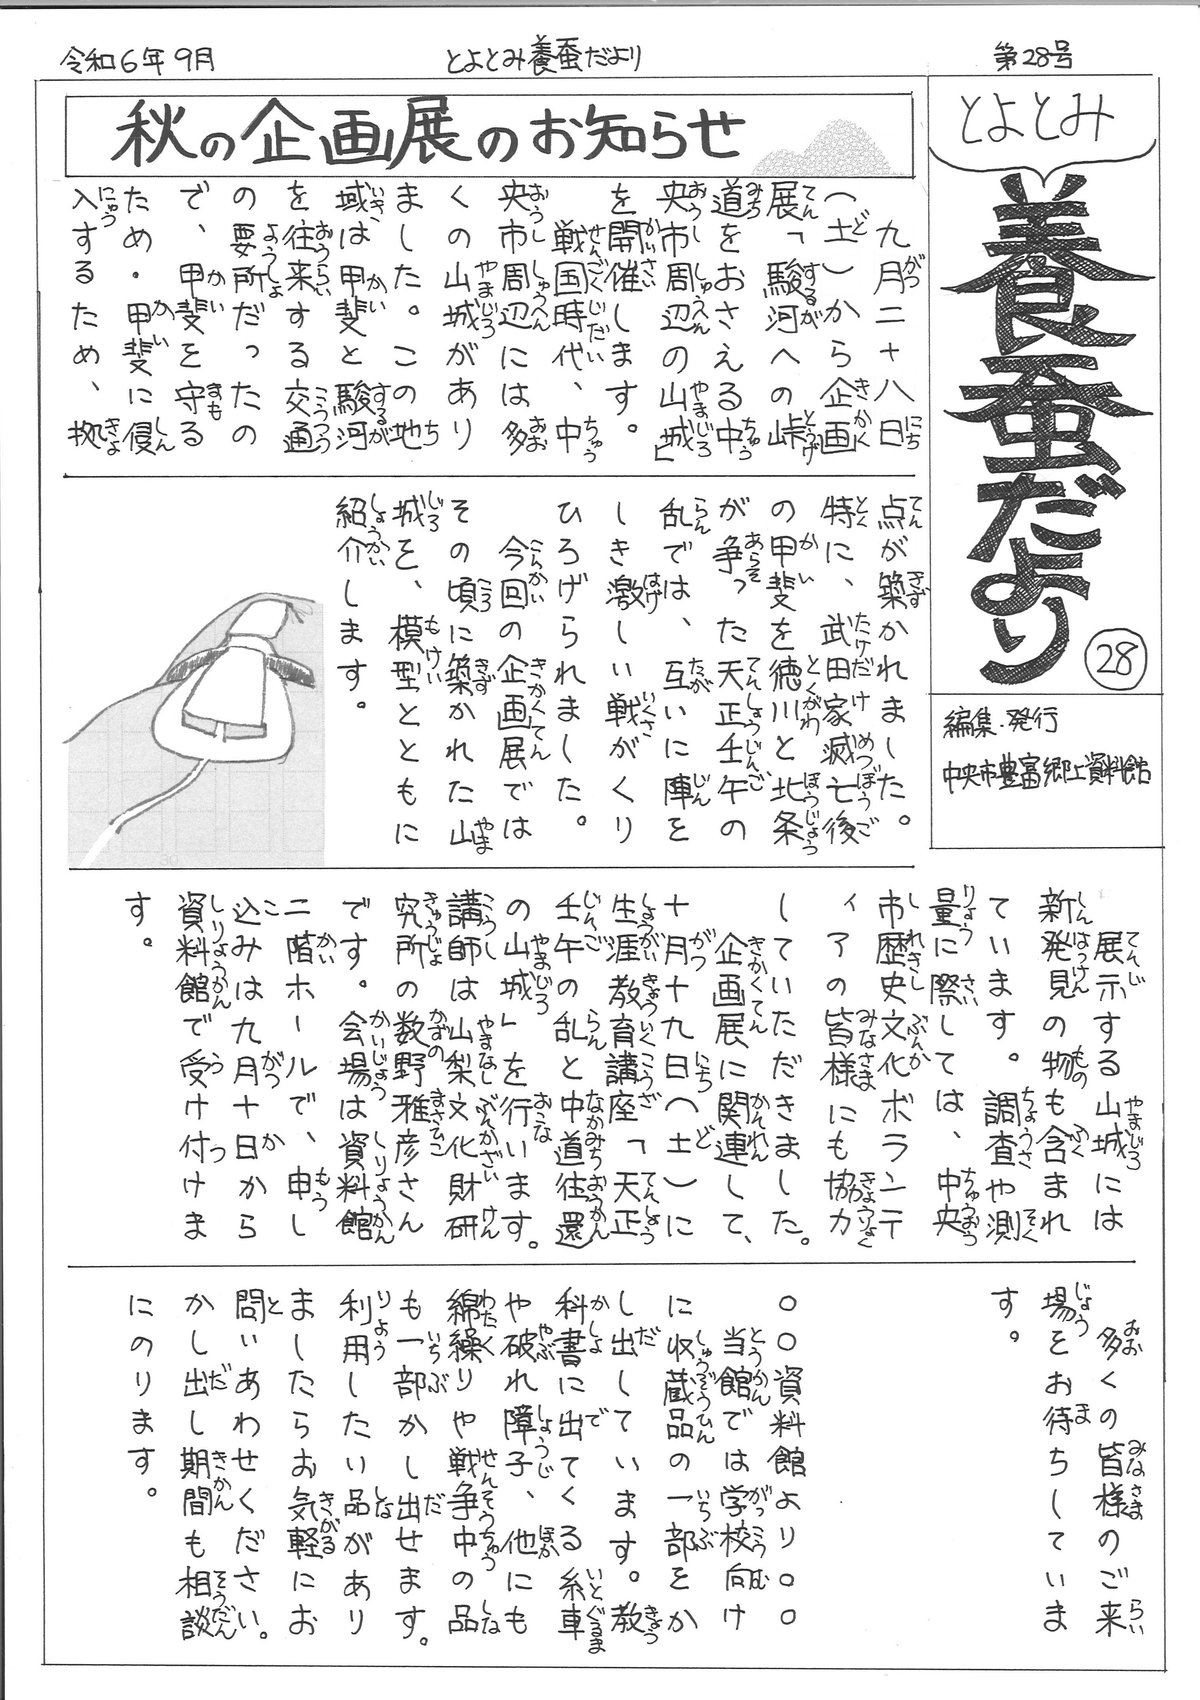 令和6年9月
とよとみ養蚕だより
第28号
とよとみ
養蚕だより
28
編集・発行
中央市豊富郷土資料館
秋の企画展のお知らせ
九月二十八日
(土)から企画
展「駿河への峠
道をおさえる中
央市周辺の山城」
を開催します。
戦国時代、中
央市周辺には多
くの山城があり
ました。この地
域は甲斐と駿河
を往来する交通
の要所だったの
で、甲斐を守る
ため・甲斐に侵
入するため、拠
点が築かれました。
特に、武田家滅亡後
の甲斐を徳川と北条
が争った天正壬午の
乱では、互いに陣を
しき激しい戦がくり
ひろげられました。
今回の企画展では
その頃に築かれた山
城を、模型とともに
紹介します。
展示する山城には
新発見の物も含まれ
ています。調査や測
量に際しては、中央
市歴史文化ボランテ
ィアの皆様にも協力
していただきました。
企画展に関連して、
十月十九日(土)に
生涯教育講座「天正
壬午の乱と中道往還
の山城」を行います。
講師は山梨文化財研
究所の数野雅彦さん
です。会場は資料館
二階ホールで、申し
込みは九月十日から
資料館で受け付けま
す。
多くの皆様のご来
場をお待ちしていま
す。
○○資料館より○○
当館では学校向け
に収蔵品の一部をか
し出しています。教
科書に出てくる糸車
や破れ障子、他にも
綿繰りや戦争中の品
も一部かし出せます。
利用したい品があり
ましたらお気軽にお
問いあわせください。
かし出し期間も相談
にのります。